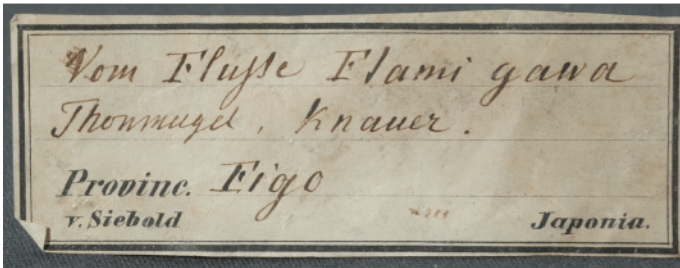 Vom Flusse Flami gawa
Thonmugel, Knauer.
Provinc. Figo
v. Siebold Japonia.